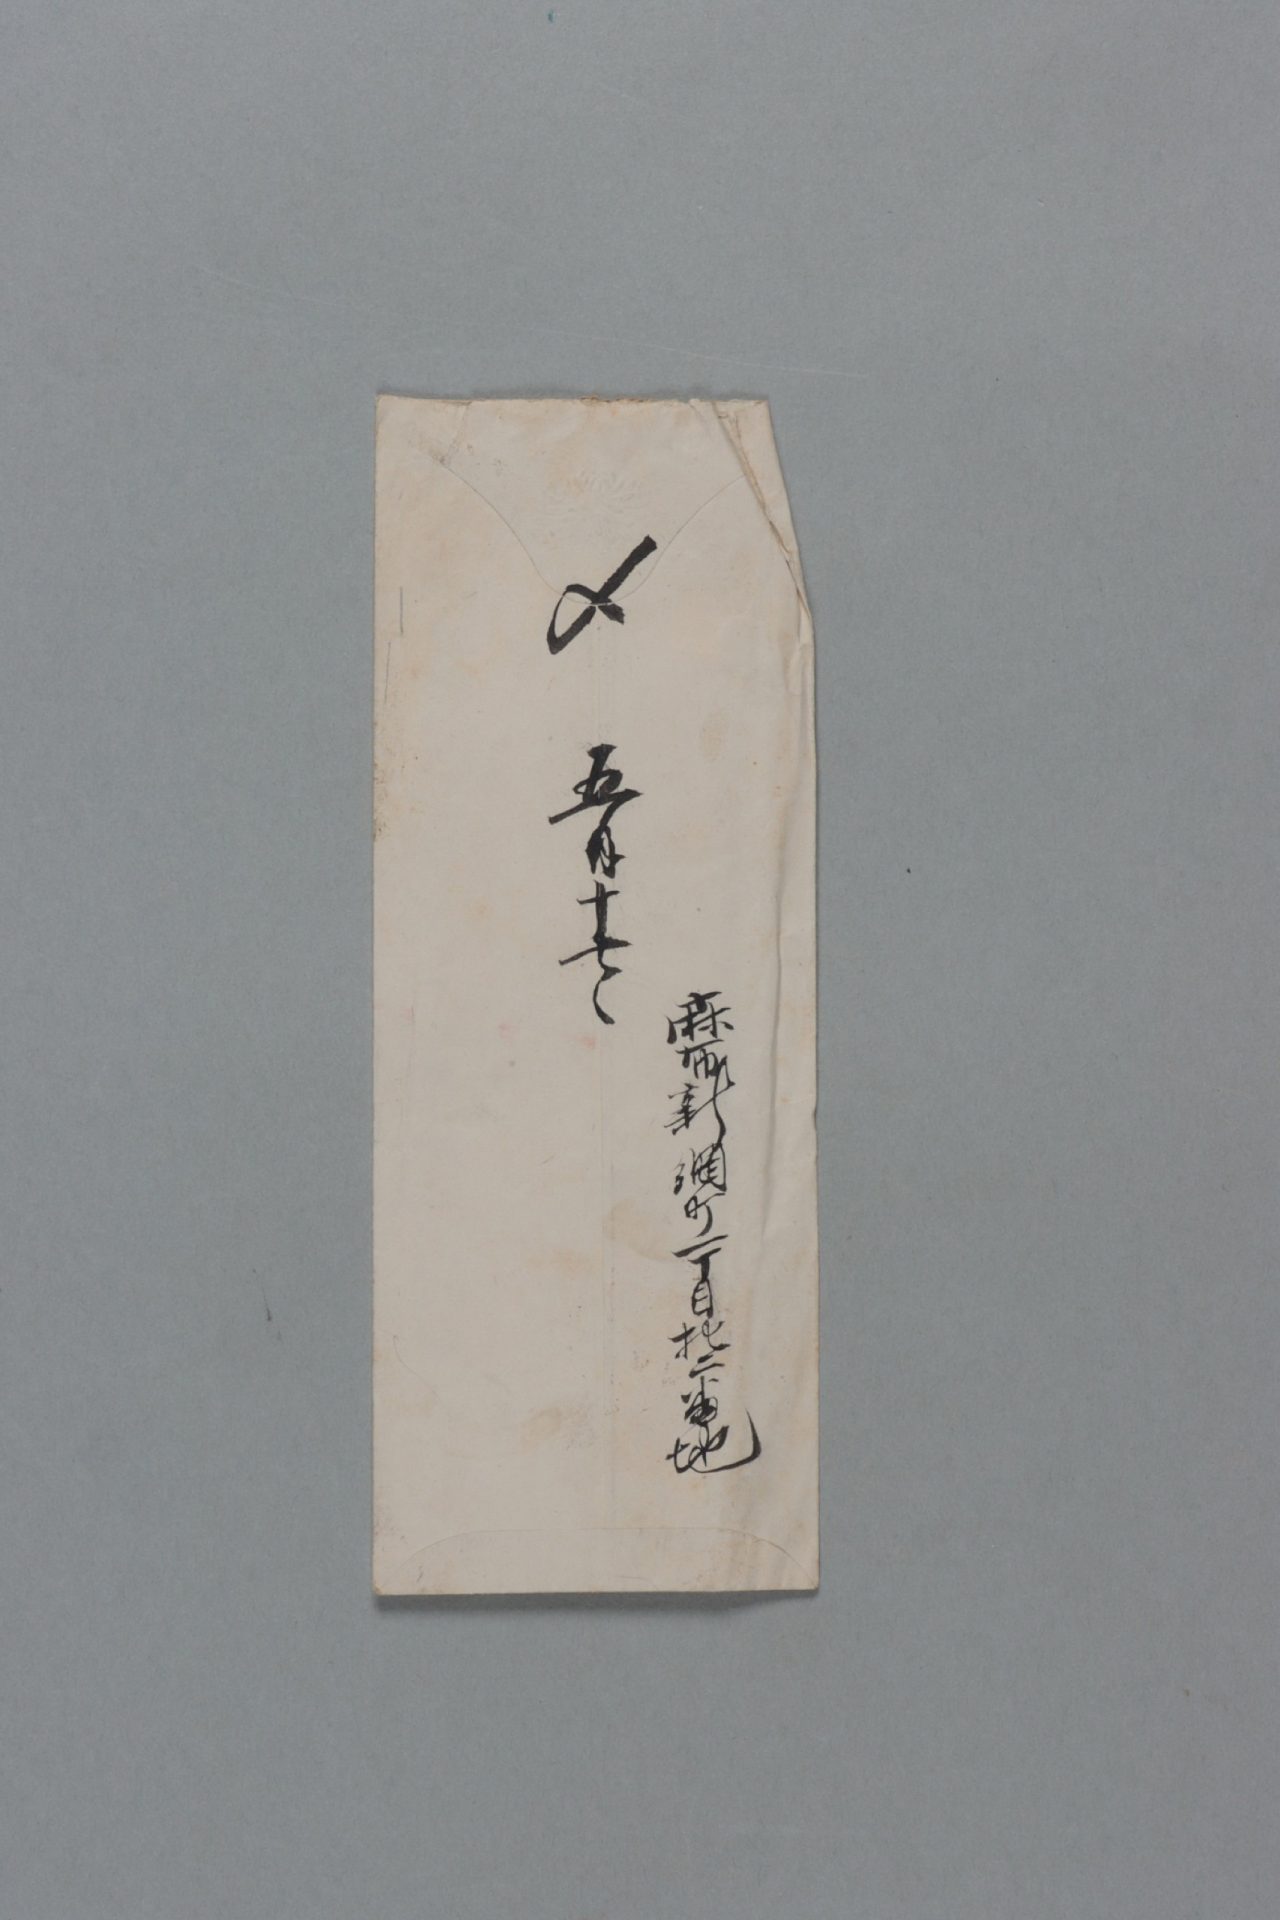 〆
五月十七日
麻布新網町一丁目拾二番地